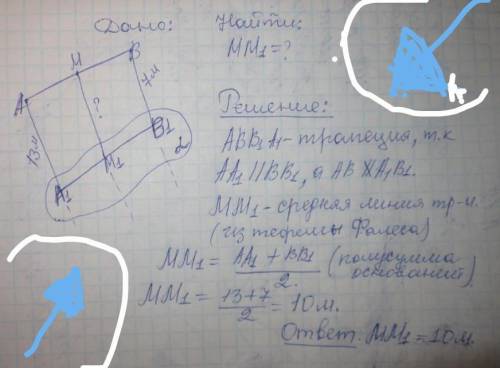 Дано:
Найти:
MM1=?
B
M
A
7м
?
13м
B1
M1
A1
α
Решение:
ABB1A1-трапеция, т.к
AA1||BB1, а AB∦A1B1.
MM1-средняя линия тр-и.
(из теоремы Фалеса)
MM1 = AA1 + BB1 / 2 (полусумма оснований).
MM1 = 13+7 / 2 = 10м.
Ответ: MM1=10м.